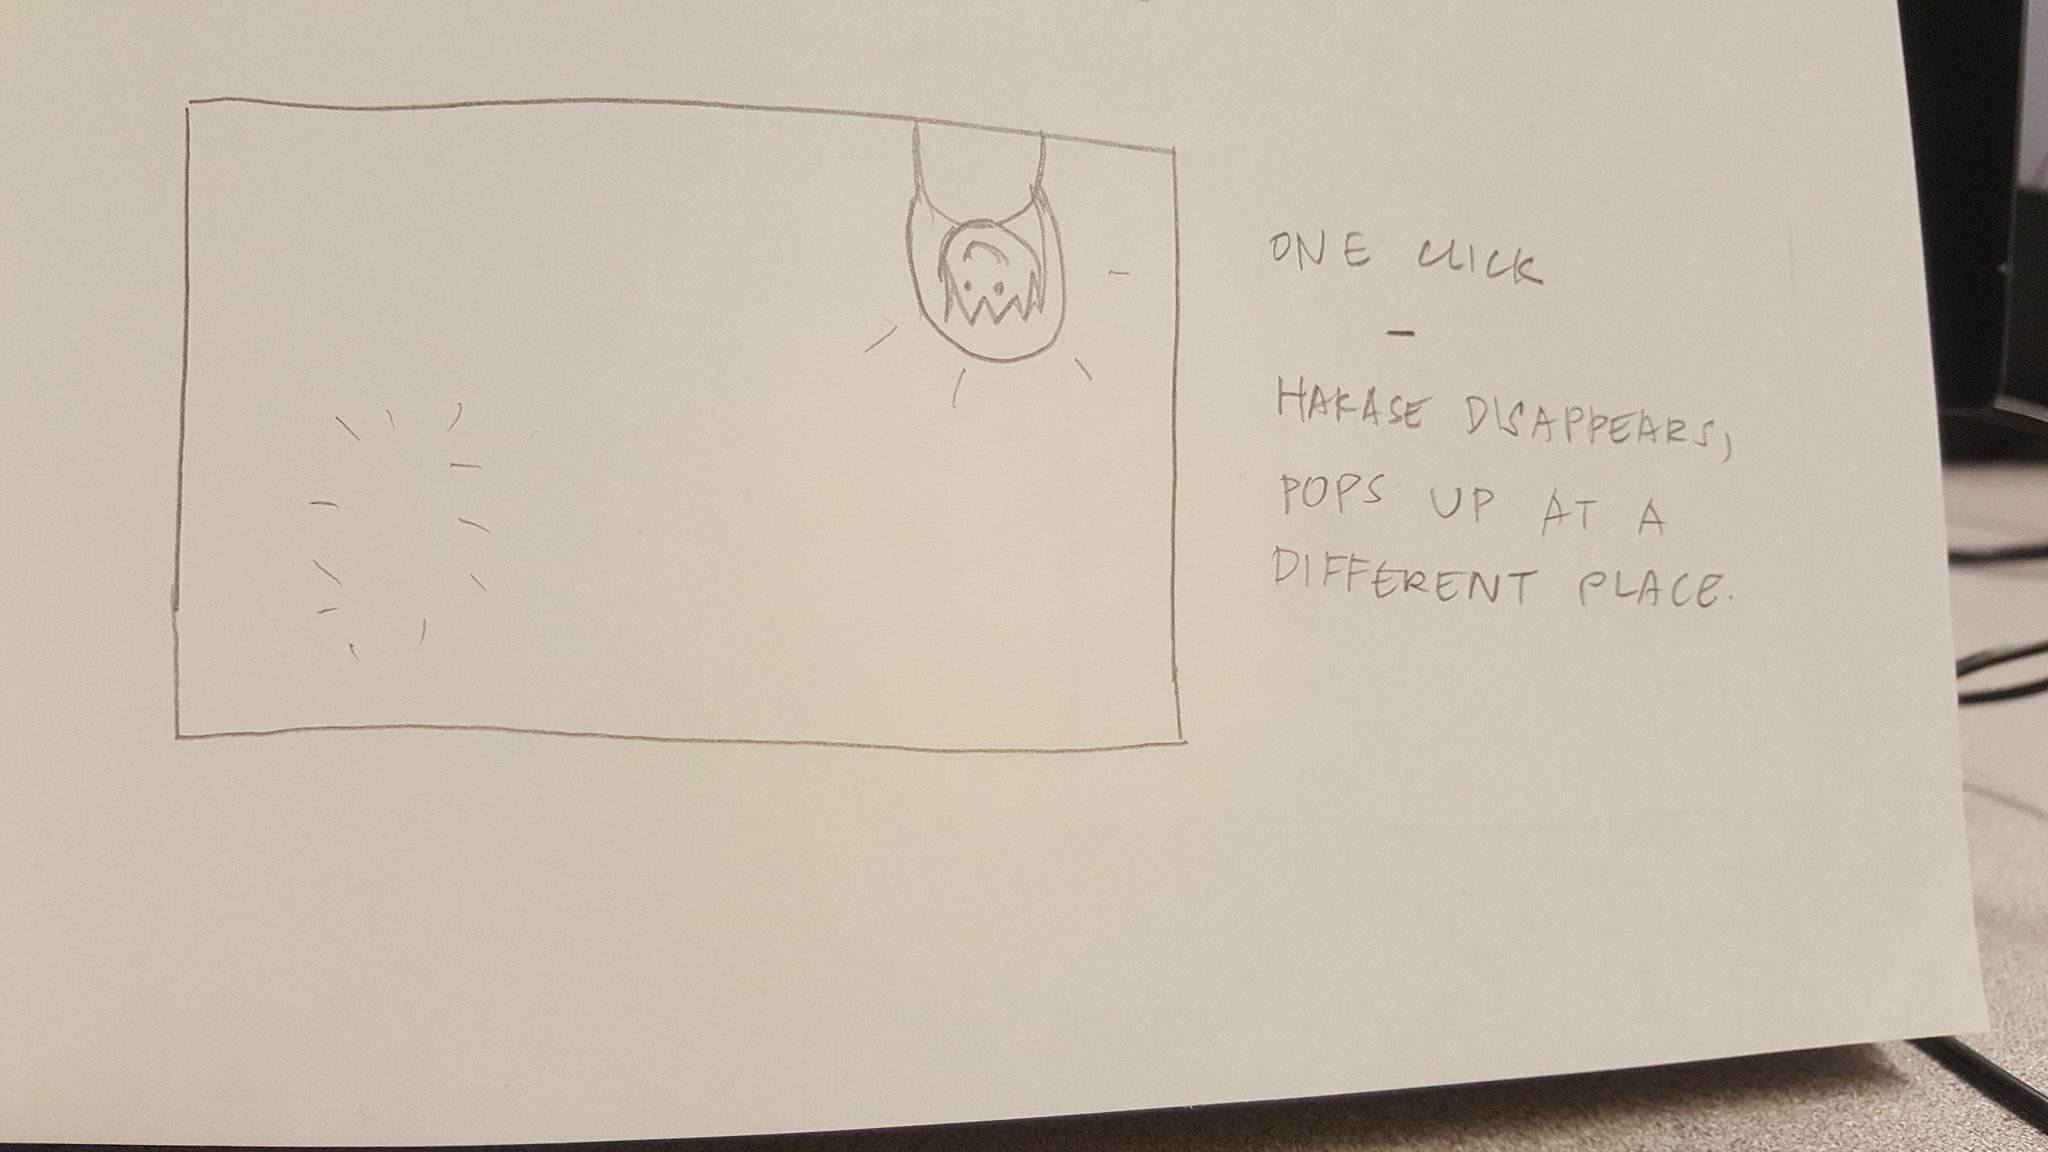 ONE CLICK
-
HAKASE DISAPPEARS,
POPS UP AT A
DIFFERENT PLACE.